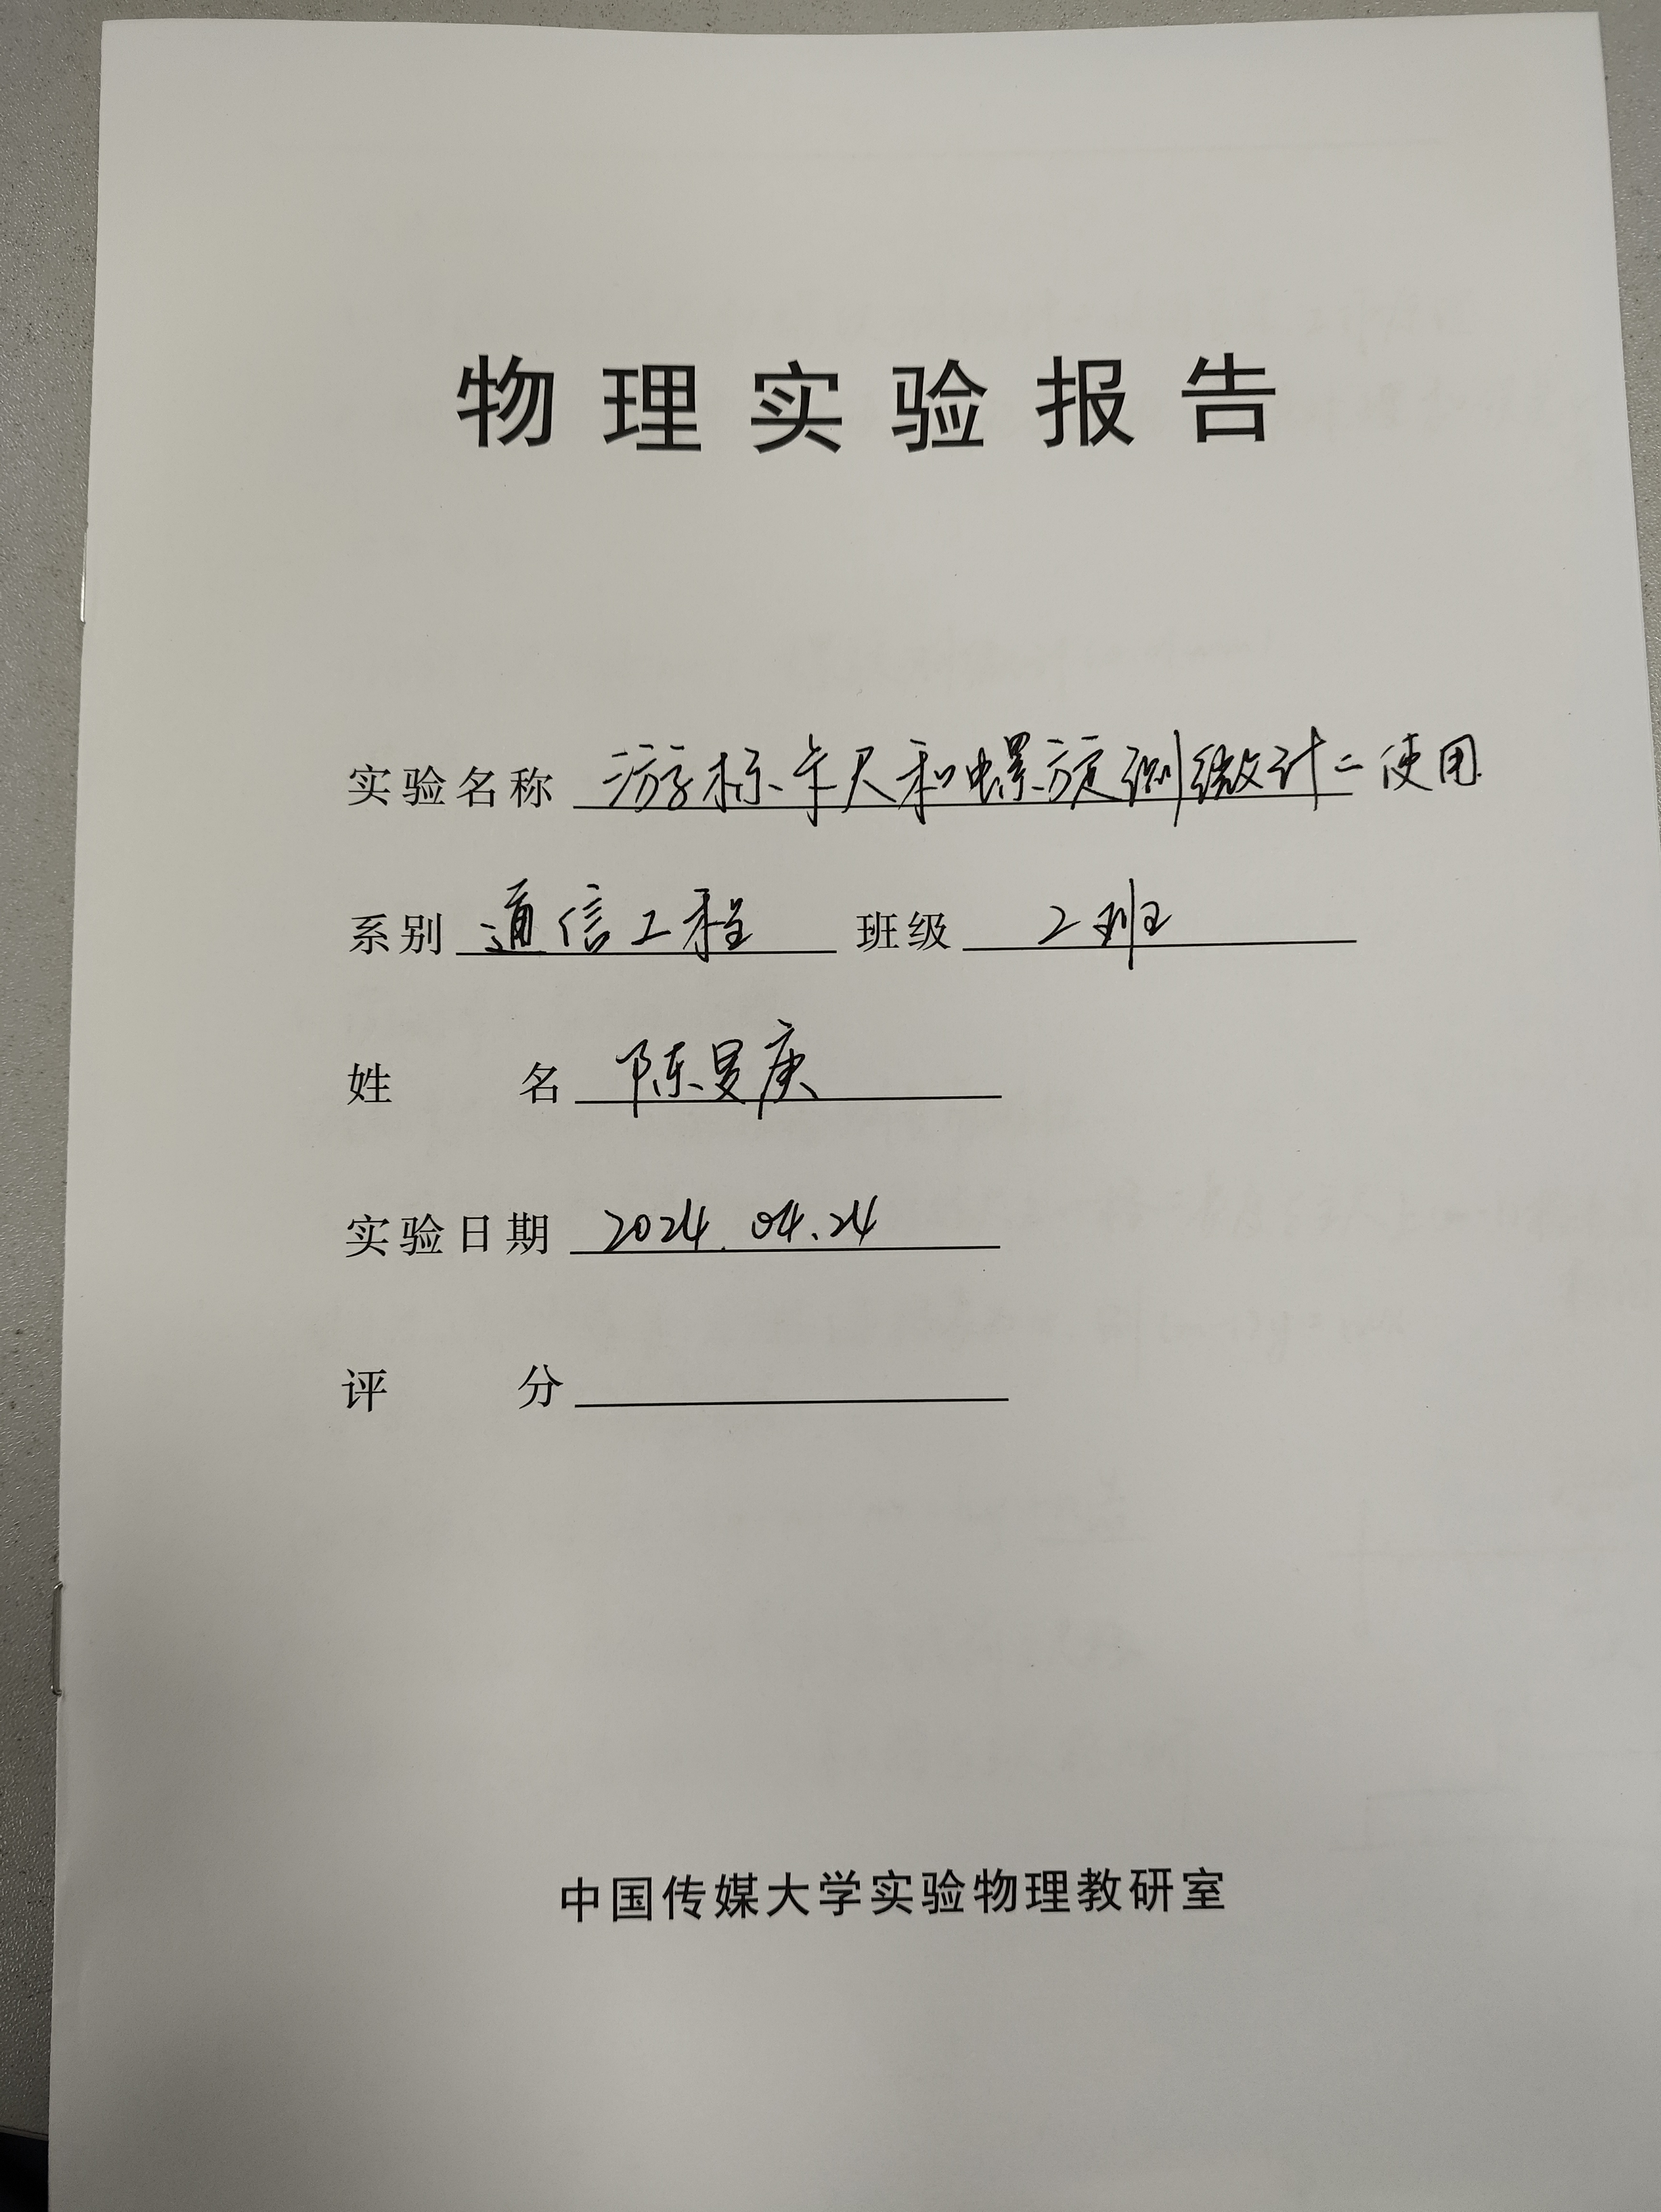 物理实验报告
实验名称 游标卡尺和螺旋测微计二使用
系别 通信工程 班级 2班
姓名 陈旻庚
实验日期 2024.04.24
评分
中国传媒大学实验物理教研室